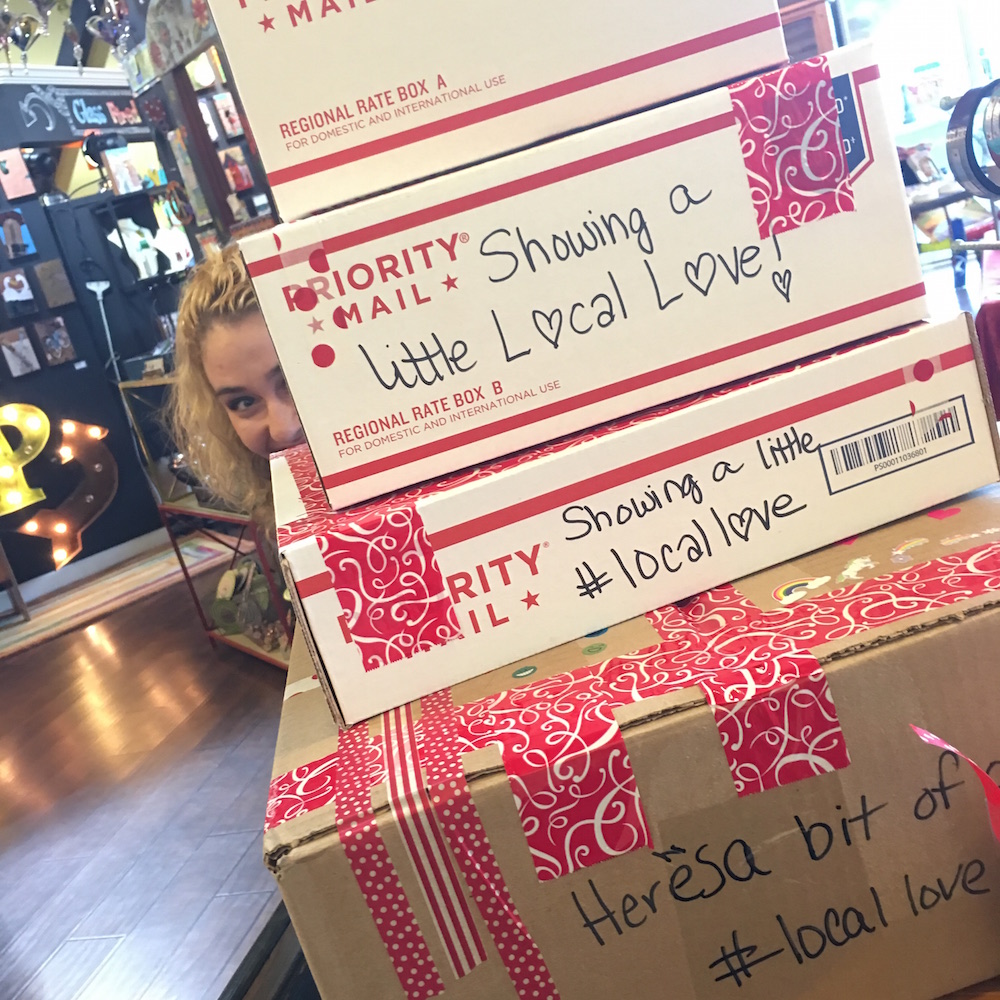 MAIL
REGIONAL RATE BOX A
FOR DOMESTIC AND INTERNATIONAL USE
Glass
PRIORITY®
MAIL
Showing a
little Local Love!
REGIONAL RATE BOX B
FOR DOMESTIC AND INTERNATIONAL USE
RITY
IL
Showing a little
#local love
PS00011036801
Here'sa bit of
#local love
P